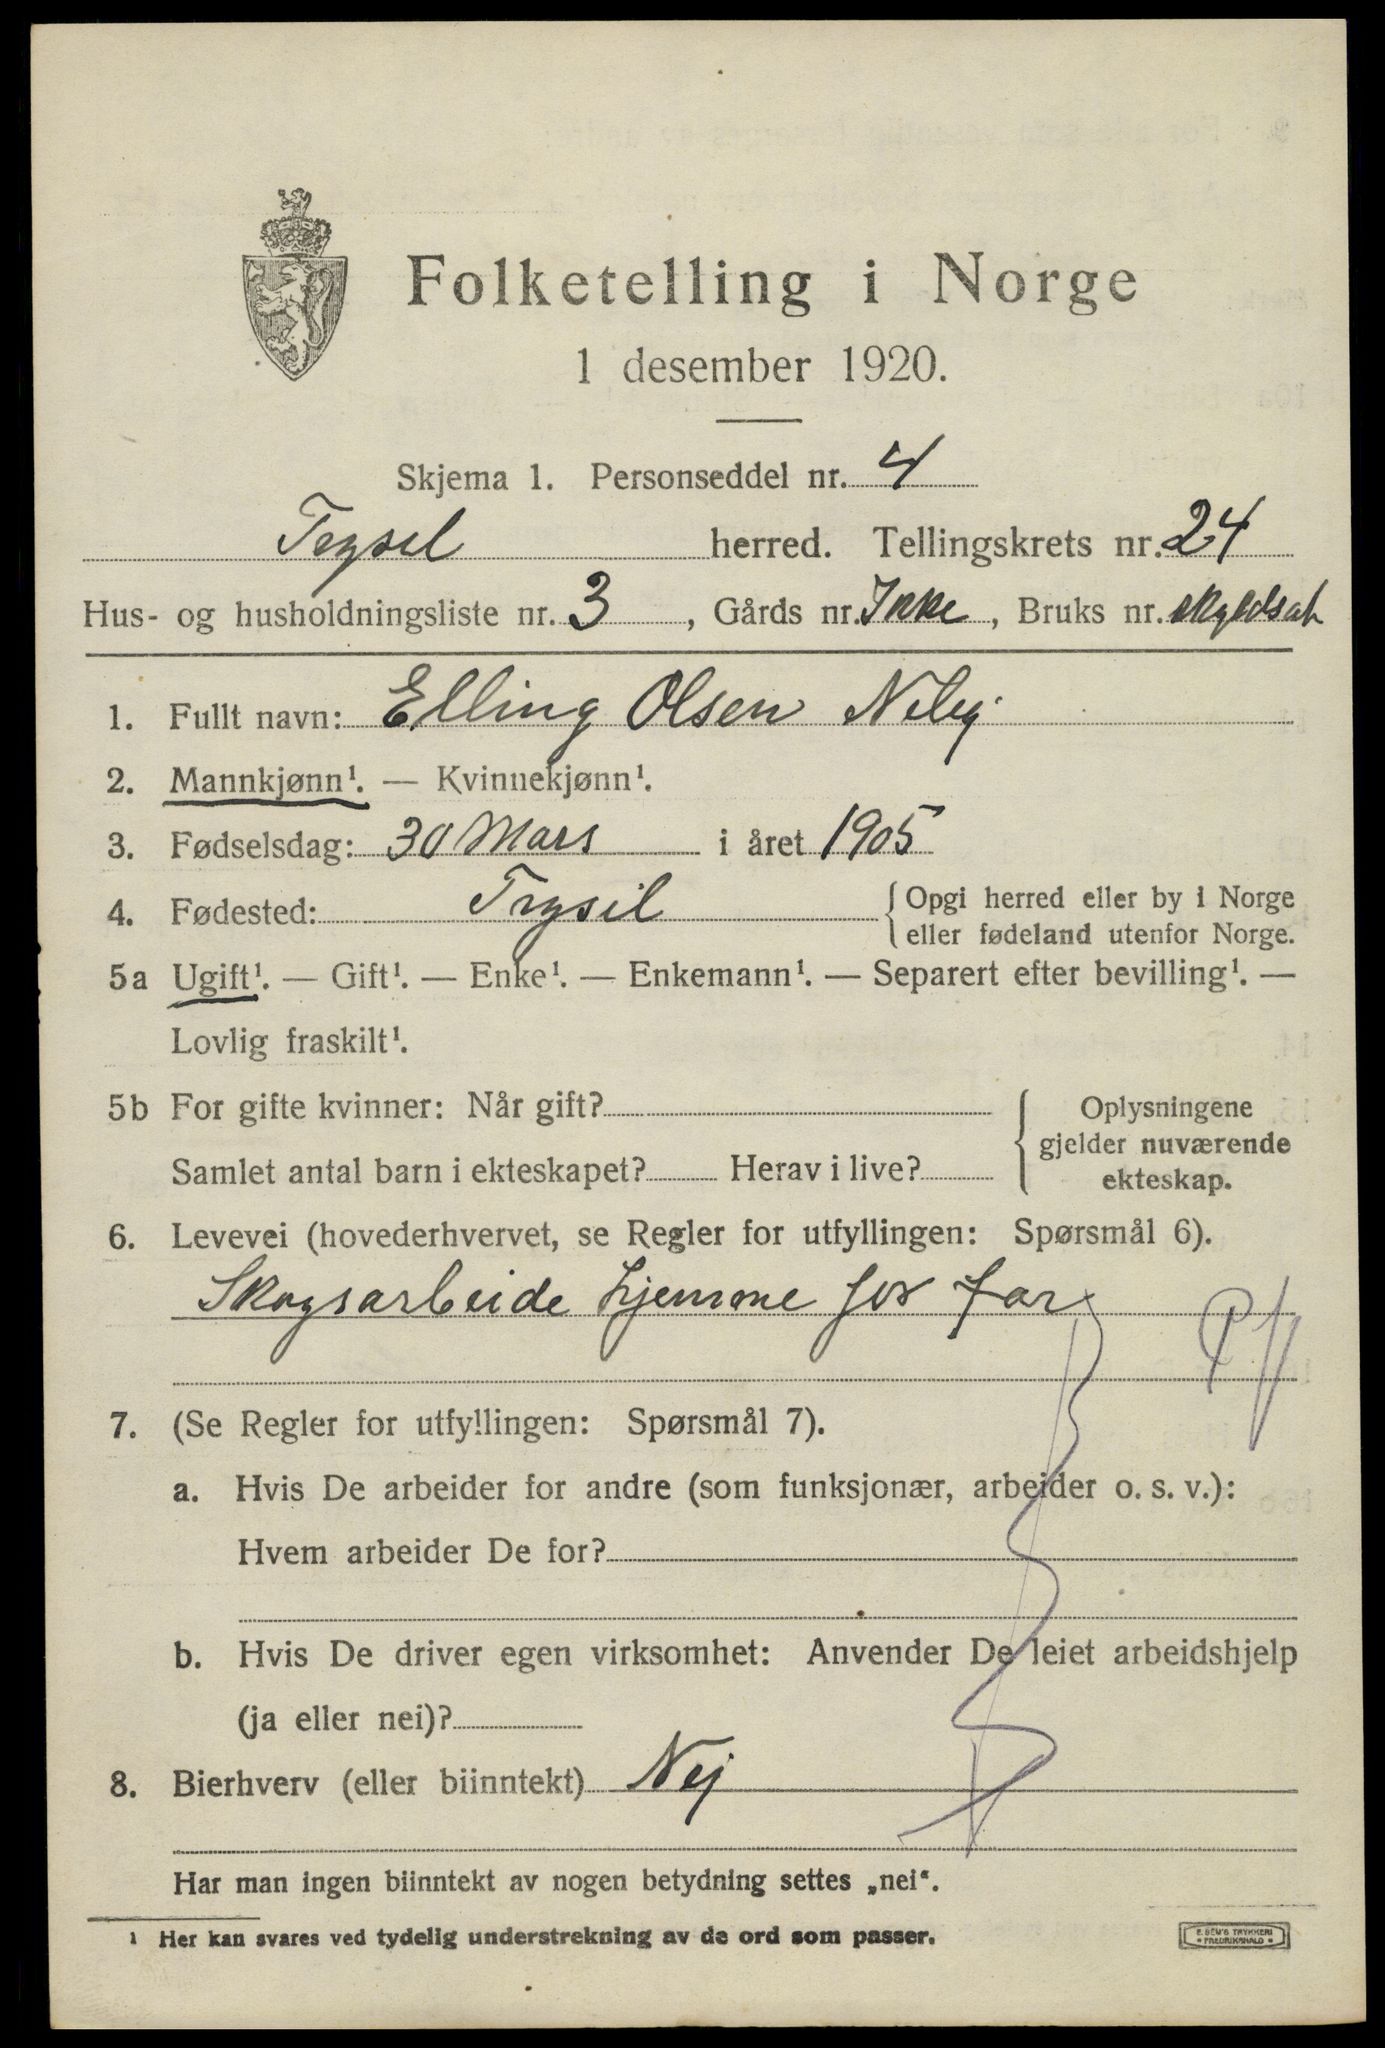 Folketelling i Norge
1 desember 1920.
Skjema 1. Personseddel nr. 4
Trysil herred. Tellingskrets nr. 24
Hus- og husholdningsliste nr. 3, Gårds nr. Ikke, Bruks nr. skyldsat
1. Fullt navn: Elling Olsen Neby
2. Mannkjønn¹. — Kvinnekjønn¹.
3. Fødselsdag: 30 Mars i året 1905
4. Fødested: Trysil {Opgi herred eller by i Norge
eller fødeland utenfor Norge.
5a Ugift¹. — Gift¹. — Enke¹. — Enkemann¹. — Separert efter bevilling¹. —
Lovlig fraskilt¹.
5b For gifte kvinner: Når gift?
Samlet antal barn i ekteskapet? Herav i live?
{Oplysningene
gjelder nuværende
ekteskap.
6. Levevei (hovederhvervet, se Regler for utfyllingen: Spørsmål 6).
Skogsarbeide hjemme for far
7. (Se Regler for utfyllingen: Spørsmål 7).
a. Hvis De arbeider for andre (som funksjonær, arbeider o. s. v.):
Hvem arbeider De for?
b. Hvis De driver egen virksomhet: Anvender De leiet arbeidshjelp
(ja eller nei)?
8. Bierhverv (eller biinntekt) Nej
Har man ingen biinntekt av nogen betydning settes „nei“.
¹ Her kan svares ved tydelig understrekning av de ord som passer.
E. SEM'S TRYKKERI
FREDRIKSHALD